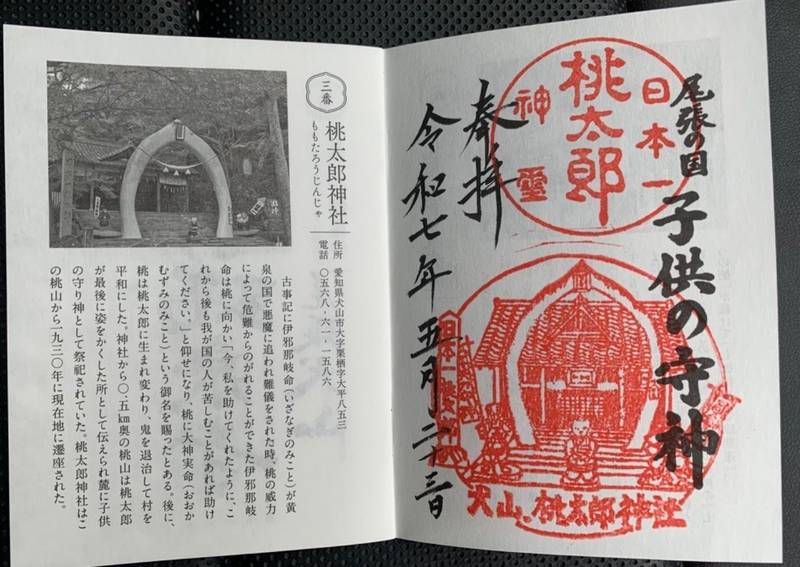 尾張の国 子供の守神
日本一
桃太郎
神霊
奉拝
令和七年五月二十三日
犬山、桃太郎神社
三番
桃太郎神社
ももたろうじんじゃ
住所 愛知県犬山市大字栗栖字大平八五三
電話 〇五六八・六一・一五八六
古事記に伊邪那岐命（いざなぎのみこと）が黄
泉の国で悪魔に追われ難儀をされた時、桃の威力
によって危難からのがれることができた伊邪那岐
命は桃に向かい「今、私を助けてくれたように、こ
れから後も我が国の人が苦しむことがあれば助け
てください。」と仰せになり、桃に大神実命（おおか
むずみのみこと）という御名を賜ったとある。後に、
桃は桃太郎に生まれ変わり、鬼を退治して村を
平和にした。神社から〇・五㎞奥の桃山は桃太郎
が最後に姿をかくした所として伝えられ麓に子供
の守り神として祭祀されていた。桃太郎神社はこ
の桃山から一九三〇年に現在地に遷座された。